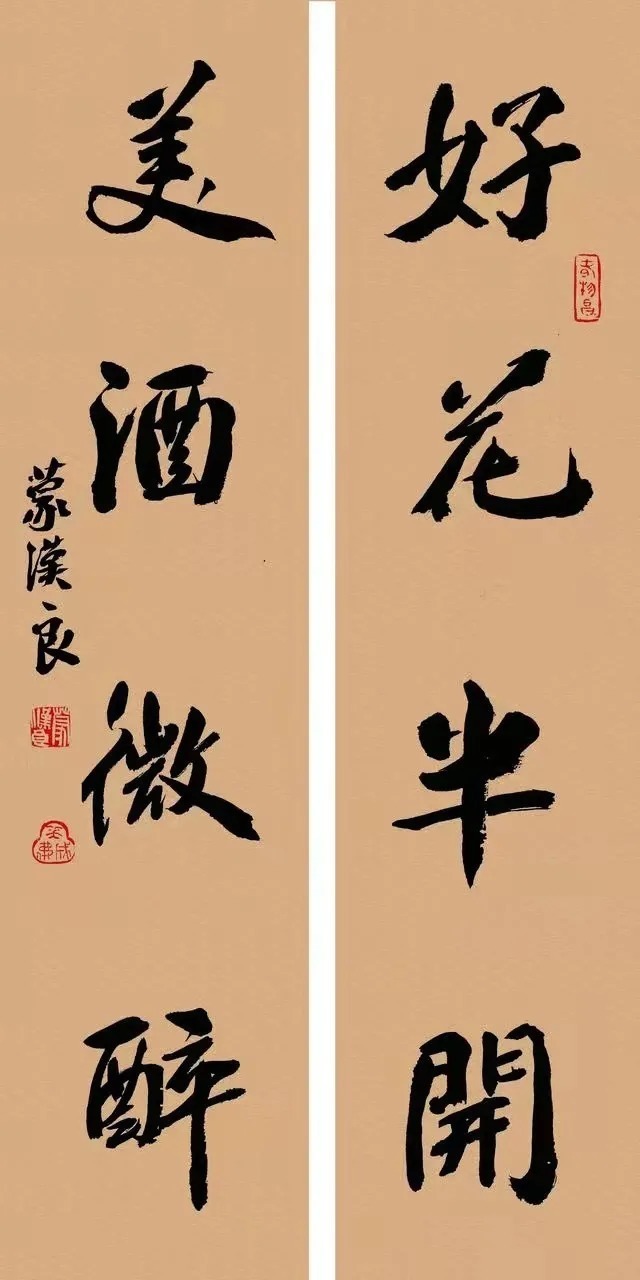 好花半開
美酒微醉
蒙漢良